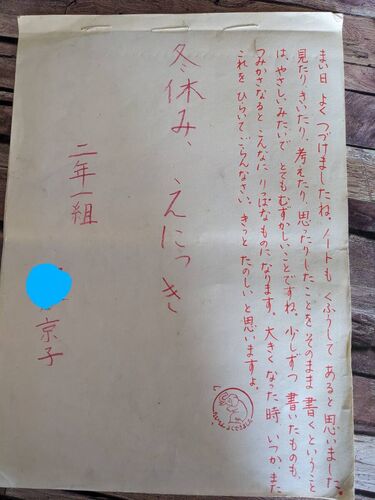 まい日 よく つづけましたね。ノートも くふうして あると 思いました。
見たり きいたり、考えたり、思ったりしたことを そのまま 書くということ
は、やさしいみたいで とてもむずかしいことですね。少しずつ 書いたものも、
つみかさなると こんなに りっぱなものに なります。大きく なった時 いつか、また
これを ひらいて ごらんなさい。きっと たのしいと 思いますよ。
冬休み、えにっき
二年一組
京子